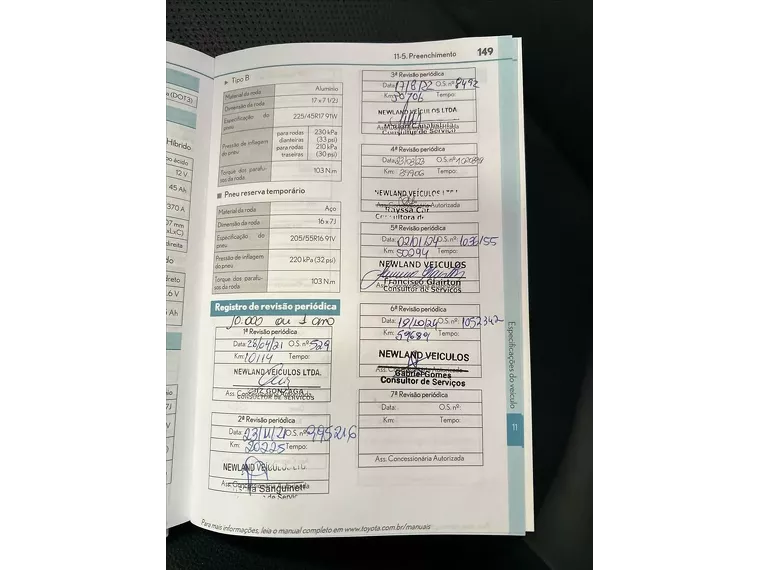 11-5. Preenchimento 149
(DOT3)
Híbrido
12 V
45 Ah
370 A
direita
6 V
Ah
Tipo B
Material da roda Alumínio
Dimensão da roda 17 x 7 1/2J
Especificação do pneu 225/45R17 91W
Pressão de inflagem do pneu
para rodas dianteiras 230 kPa (33 psi)
para rodas traseiras 210 kPa (30 psi)
Torque dos parafusos da roda 103 N.m
Pneu reserva temporário
Material da roda Aço
Dimensão da roda 16 x 7J
Especificação do pneu 205/55R16 91V
Pressão de inflagem do pneu 220 kPa (32 psi)
Torque dos parafusos da roda 103 N.m
Registro de revisão periódica
10.000 ou 1 ano
1ª Revisão periódica
Data: 26/04/21 O.S. nº: 529
Km: 10114 Tempo:
NEWLAND VEICULOS LTDA.
LUIZ GONZAGA
CONSULTOR DE SERVICOS
2ª Revisão periódica
Data: 23/11/21 O.S. nº: 995216
Km: 20225 Tempo:
NEWLAND VEICULOS LTD
Ass. Concessionária Autorizada
Sanguinet
3ª Revisão periódica
Data: 17/8/22 O.S. nº: 8492
Km: 30706 Tempo:
NEWLAND VEICULOS LTDA.
Consultor de Servico
4ª Revisão periódica
O.S. nº:
Km: 39906 Tempo:
NEWLAND VEICULOS LTD
Ass. Concessionária Autorizada
Rayssa
5ª Revisão periódica
Data: 02/01/24 O.S. nº: 1036155
Km: 50294 Tempo:
NEWLAND VEICULOS
Francisco Glairton
Consultor de Serviços
6ª Revisão periódica
Data: 18/10/24 O.S. nº: 1052342
Km: 59689 Tempo:
NEWLAND VEICULOS
Gabriel Gomes
Consultor de Serviços
7ª Revisão periódica
Data: O.S. nº:
Km: Tempo:
Ass. Concessionária Autorizada
Especificações do veículo
11
Para mais informações, leia o manual completo em www.toyota.com.br/manuais